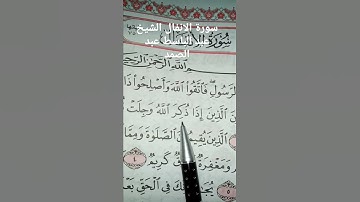 سورة الانفال الشيخ
عبد الباسط عبد
الصمد
سُورَةُ
بِسْمِ اللَّهِ الرَّحْمَٰنِ الرَّحِيمِ
الرَّسُولِ فَاتَّقُوا اللَّهَ وَأَصْلِحُوا ذَا
الَّذِينَ إِذَا ذُكِرَ اللَّهُ وَجِلَتْ
الَّذِينَ يُقِيمُونَ الصَّلَوٰةَ وَمِمَّا
وَمَغْفِرَةٌ كَرِيمٌ ٤
فِي الْحَقِّ بَعْدَ
٥